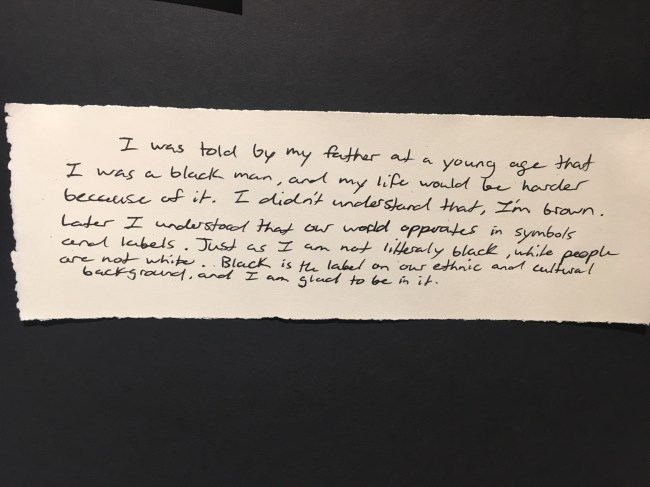 I was told by my father at a young age that
I was a black man, and my life would be harder
because of it. I didn't understand that, I'm brown.
Later I understood that our world opperates in symbols
and labels. Just as I am not litteraly black, white people
are not white. Black is the label on our ethnic and cultural
background, and I am glad to be in it.